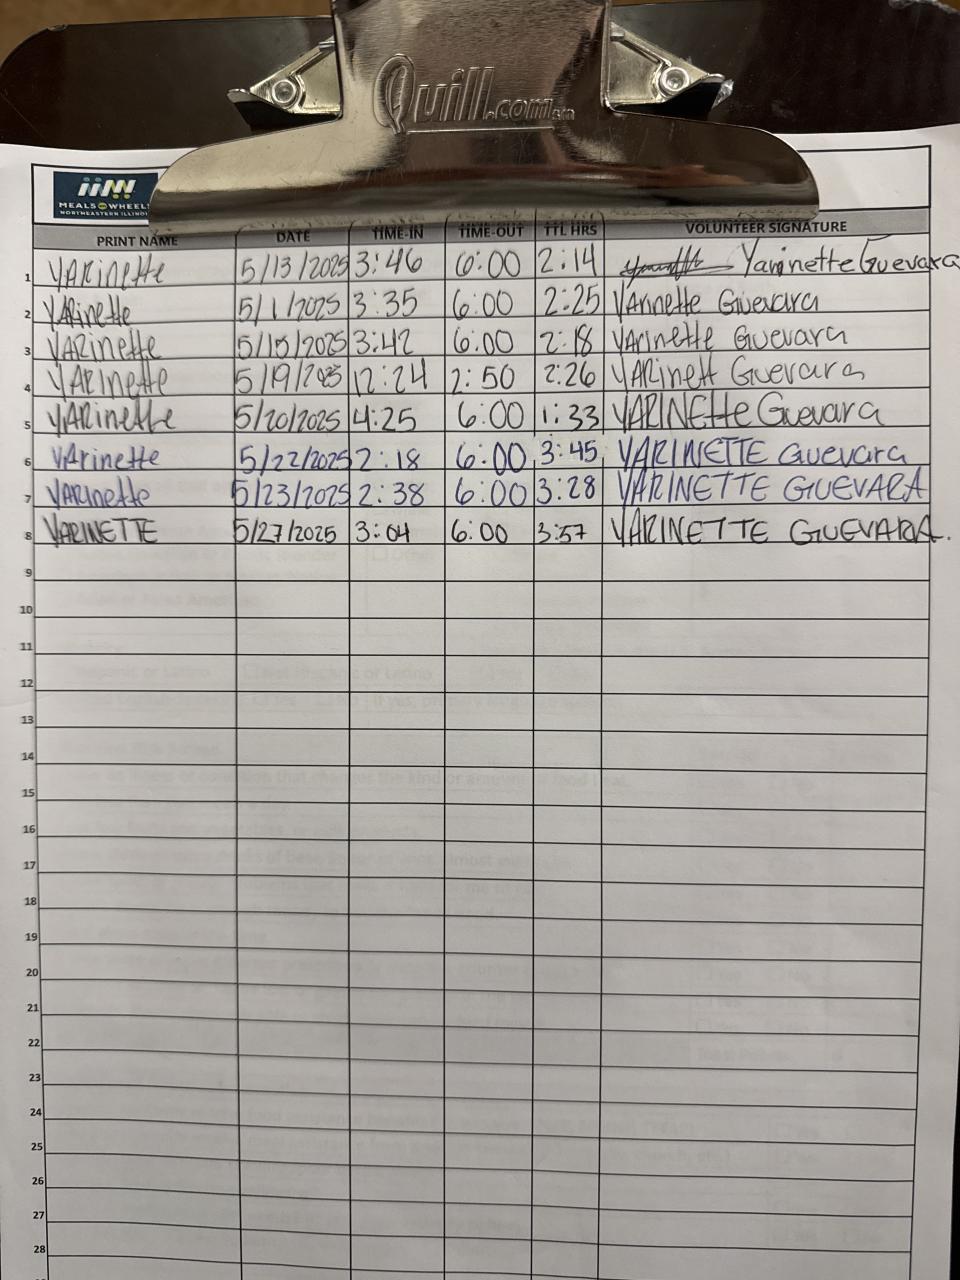 Quill.com
MEALS on WHEELS
NORTHEASTERN ILLINOIS
PRINT NAME DATE TIME-IN TIME-OUT TTL HRS VOLUNTEER SIGNATURE
1 YARinette 5/13/2025 3:46 6:00 2:14 Yarinette Guevara
2 YARinette 5/1/2025 3:35 6:00 2:25 YArinette Guevara
3 YARinette 5/15/2025 3:42 6:00 2:18 YArinette Guevara
4 YARinette 5/19/2025 12:24 2:50 2:26 YARinett Guevara
5 YARinette 5/20/2025 4:25 6:00 1:33 YARINEtte Guevara
6 YArinette 5/22/2025 2:18 6:00 3:45 YARINETTE Guevara
7 YARinette 5/23/2025 2:38 6:00 3:28 YARINETTE GUEVARA
8 YARINETTE 5/27/2025 3:04 6:00 3:57 YARINETTE GUEVARA.
9
10
11
12
13
14
15
16
17
18
19
20
21
22
23
24
25
26
27
28